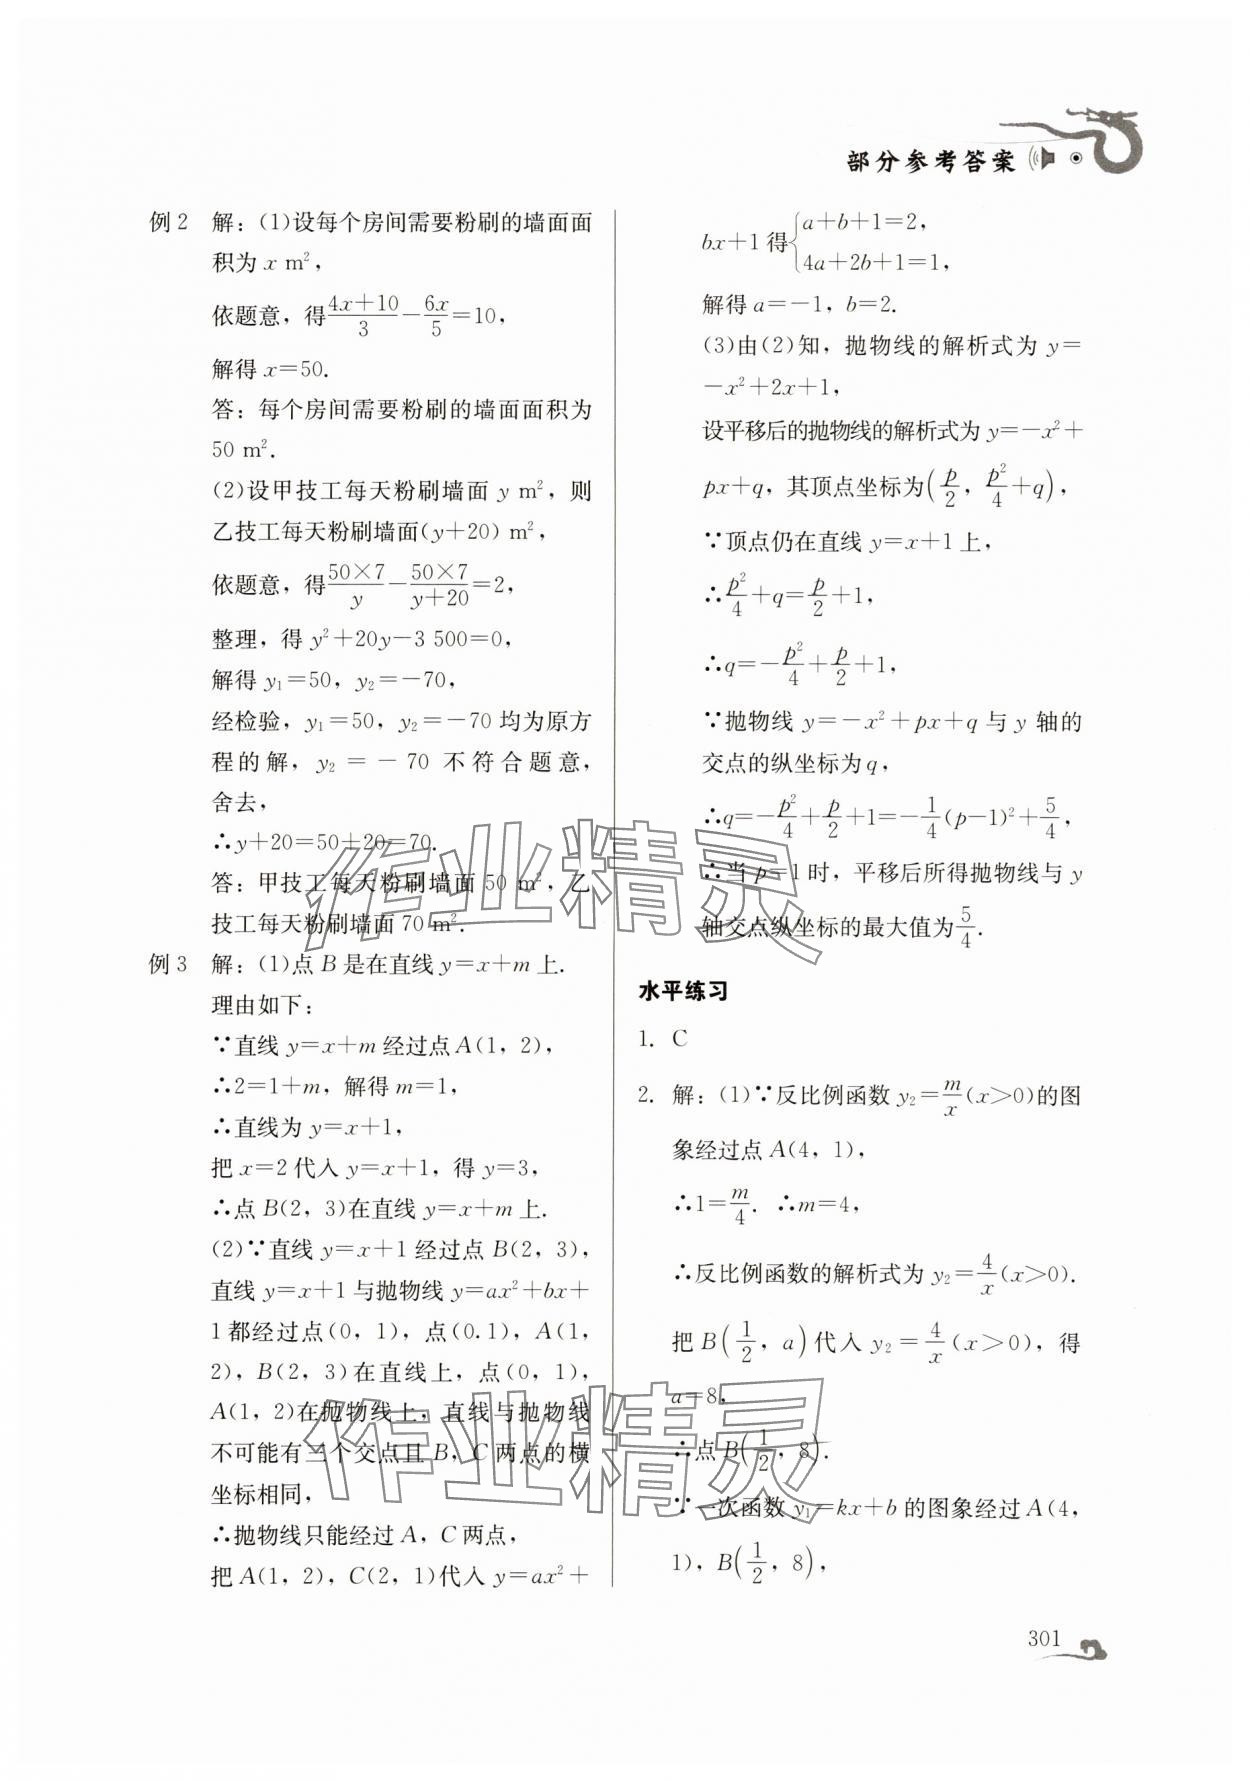 部分参考答案
例2 解：(1)设每个房间需要粉刷的墙面面
积为 x m²，
依题意，得(4x+10)/3−6x/5=10，
解得 x=50.
答：每个房间需要粉刷的墙面面积为
50 m².
(2)设甲技工每天粉刷墙面 y m²，则
乙技工每天粉刷墙面(y+20) m²，
依题意，得(50×7)/y−(50×7)/(y+20)=2，
整理，得 y²+20y−3 500=0，
解得 y₁=50，y₂=−70，
经检验，y₁=50，y₂=−70 均为原方
程的解，y₂=−70 不符合题意，
舍去，
∴y+20=50+20=70.
答：甲技工每天粉刷墙面 50 m²，乙
技工每天粉刷墙面 70 m².
例3 解：(1)点 B 是在直线 y=x+m 上.
理由如下：
∵直线 y=x+m 经过点 A(1，2)，
∴2=1+m，解得 m=1，
∴直线为 y=x+1，
把 x=2 代入 y=x+1，得 y=3，
∴点 B(2，3)在直线 y=x+m 上.
(2)∵直线 y=x+1 经过点 B(2，3)，
直线 y=x+1 与抛物线 y=ax²+bx+
1都经过点(0，1)，点(0.1)，A(1，
2)，B(2，3)在直线上，点(0，1)，
A(1，2)在抛物线上，直线与抛物线
不可能有三个交点且 B，C 两点的横
坐标相同，
∴抛物线只能经过 A，C 两点，
把 A(1，2)，C(2，1)代入 y=ax²+
bx+1 得{a+b+1=2，
4a+2b+1=1，
解得 a=−1，b=2.
(3)由(2)知，抛物线的解析式为 y=
−x²+2x+1，
设平移后的抛物线的解析式为 y=−x²+
px+q，其顶点坐标为(p/2，p²/4+q)，
∵顶点仍在直线 y=x+1 上，
∴p²/4+q=p/2+1，
∴q=−p²/4+p/2+1，
∵抛物线 y=−x²+px+q 与 y 轴的
交点的纵坐标为 q，
∴q=−p²/4+p/2+1=−1/4(p−1)²+5/4，
∴当 p=1 时，平移后所得抛物线与 y
轴交点纵坐标的最大值为5/4.
水平练习
1. C
2. 解：(1)∵反比例函数 y₂=m/x(x>0)的图
象经过点 A(4，1)，
∴1=m/4. ∴m=4，
∴反比例函数的解析式为 y₂=4/x(x>0).
把 B(1/2，a)代入 y₂=4/x(x>0)，得
a=8，
∴点 B(1/2，8).
∵一次函数 y₁=kx+b 的图象经过 A(4，
1)，B(1/2，8)，
301
作业精灵
作业精灵